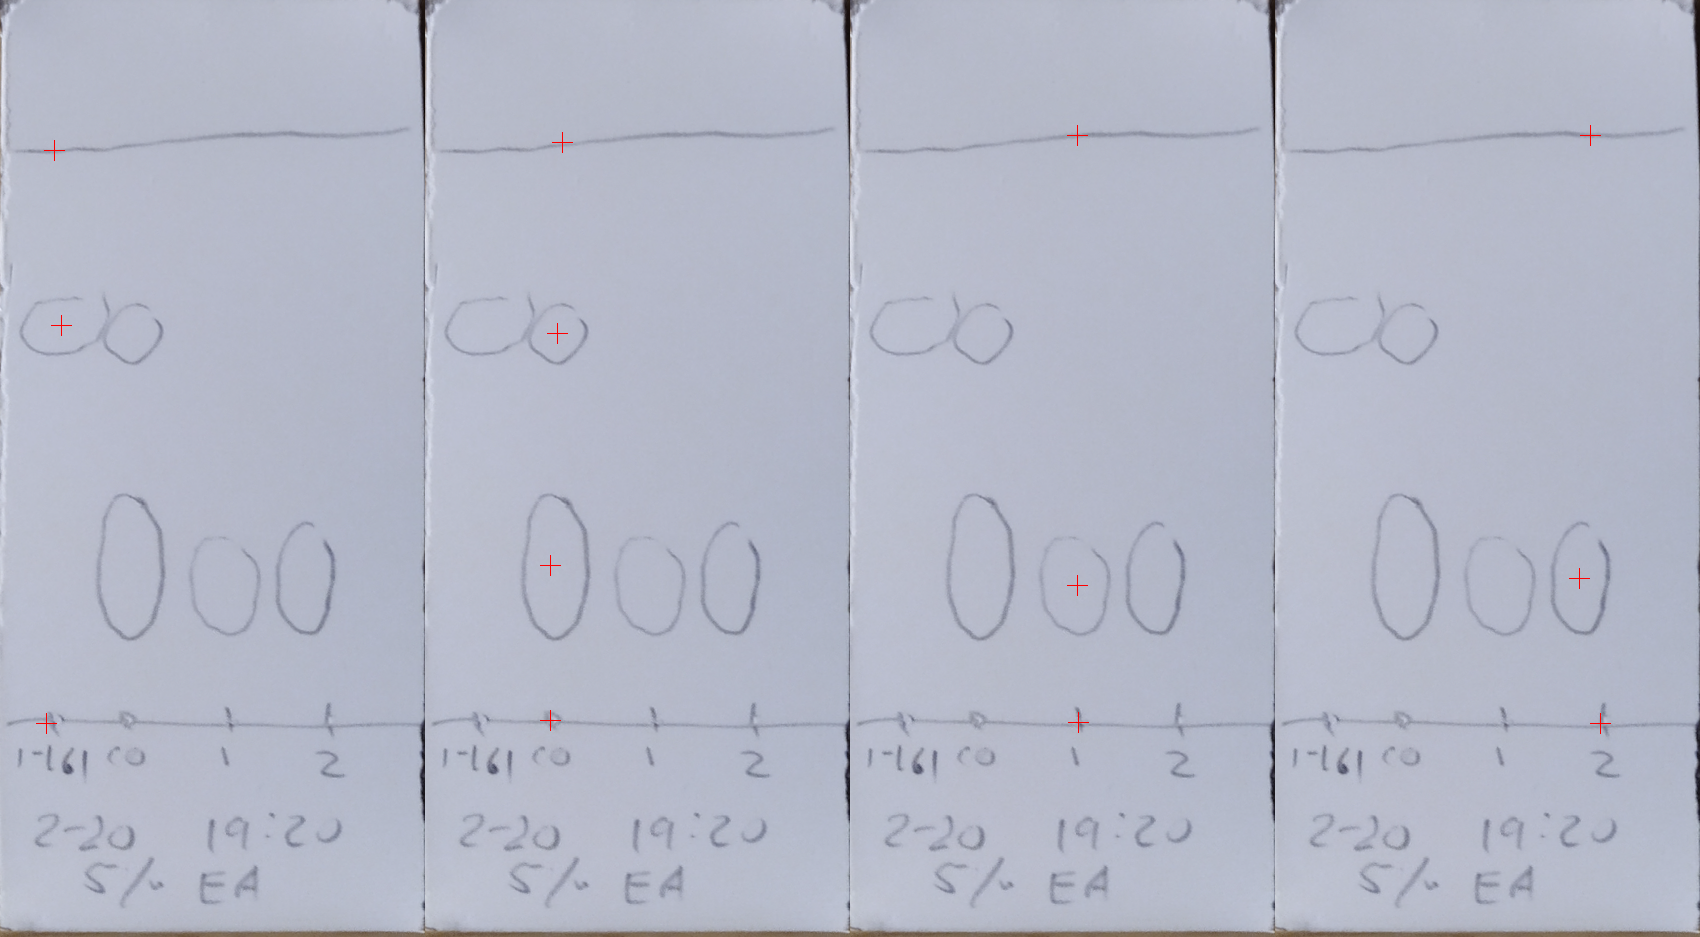 1-161 CO 1 2
2-20 19:20
5% EA
1-161 CO 1 2
2-20 19:20
5% EA
1-161 CO 1 2
2-20 19:20
5% EA
1-161 CO 1 2
2-20 19:20
5% EA